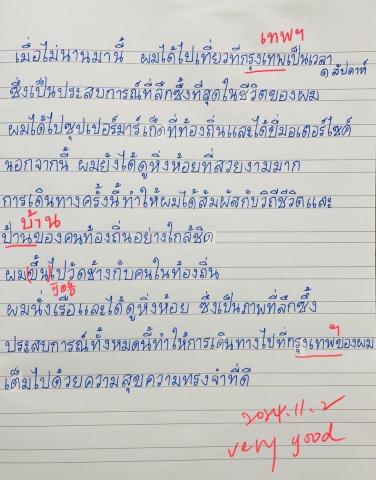 เทพฯ
เมื่อไม่นานมานี้ ผมได้ไปเที่ยวที่กรุงเทพเป็นเวลา
๑ สัปดาห์
ซึ่งเป็นประสบการณ์ที่ลึกซึ้งที่สุดในชีวิตของผม
ผมได้ไปซุปเปอร์มาร์เก็ตที่ท้องถิ่นและได้ขี่มอเตอร์ไซค์
นอกจากนี้ ผมยังได้ดูหิ่งห้อยที่สวยงามมาก
การเดินทางครั้งนี้ทำให้ผมได้สัมผัสกับวิถีชีวิตและ
บ้าน
ป้านของคนท้องถิ่นอย่างใกล้ชิด
ผมขึ้นไปวัดช้างกับคนในท้องถิ่น
ผมนั่งเรือและได้ดูหิ่งห้อย ซึ่งเป็นภาพที่ลึกซึ้ง
ประสบการณ์ทั้งหมดนี้ทำให้การเดินทางไปที่กรุงเทพฯของผม
เต็มไปด้วยความสุขความทรงจำที่ดี
2024.11.2
very good